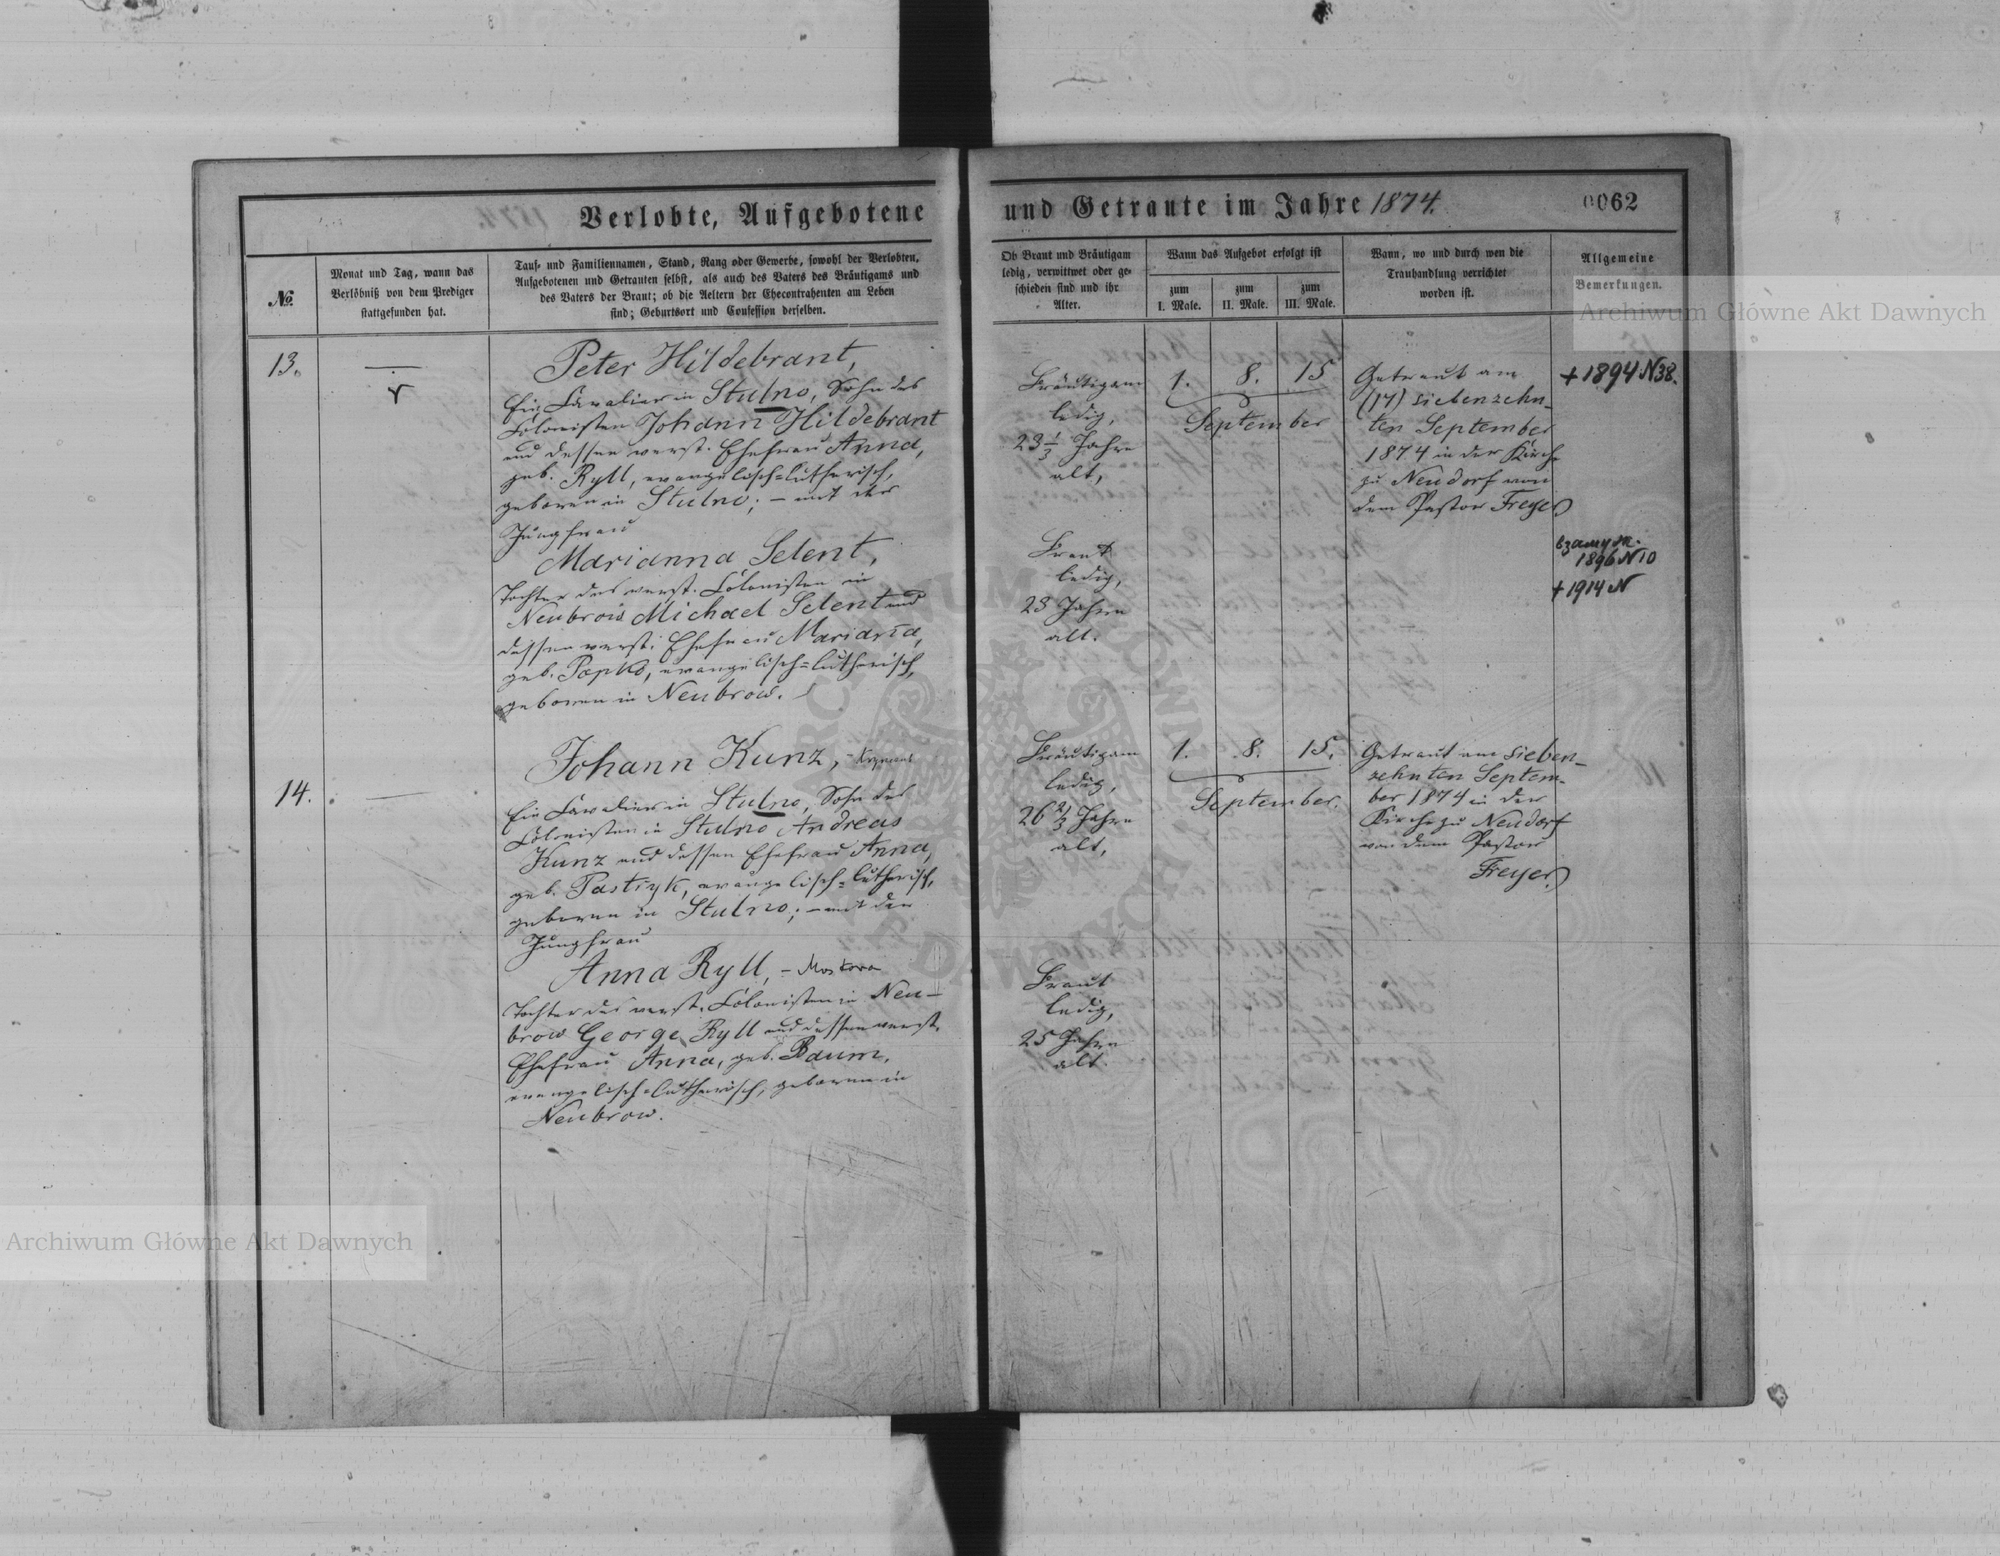 Verlobte, Aufgebotene und Getraute im Jahre 1874.
0062
No.
Monat und Tag, wann das
Verlöbniß von dem Prediger
stattgefunden hat.
Tauf- und Familiennamen, Stand, Rang oder Gewerbe, sowohl der Verlobten,
Aufgebotenen und Getrauten selbst, als auch des Vaters des Bräutigams und
des Vaters der Braut; ob die Aeltern der Ehecontrahenten am Leben
sind; Geburtsort und Confession derselben.
Ob Braut und Bräutigam
ledig, verwittwet oder ge-
schieden sind und ihr
Alter.
Wann das Aufgebot erfolgt ist
zum
I. Male.
zum
II. Male.
zum
III. Male.
Wann, wo und durch wen die
Trauhandlung verrichtet
worden ist.
Allgemeine
Bemerkungen.
13.
Peter Hildebrant,
Ein Cavalier in Stulno, Sohn des
Colonisten Johann Hildebrant
und dessen verst. Ehefrau Anna,
geb. Ryll, evangelisch=lutherisch,
geboren in Stulno; – mit der
Jungfrau
Marianna Selent,
Tochter des verst. Colonisten in
Neubrow Michael Selent und
dessen verst. Ehefrau Marianna,
geb. Popko, evangelisch=lutherisch,
geboren in Neubrow.
Bräutigam
ledig,
23 1/3 Jahre
alt,
Braut
ledig,
23 Jahre
alt.
1. 8. 15
September
Getraut am
(17) siebenzehn-
ten September
1874 in der Kirche
zu Neudorf von
dem Pastor Freyer
+ 1894 N 38.
1896 N 10
+ 1914 N
14.
Johann Kunz,
Ein Cavalier in Stulno, Sohn des
Colonisten in Stulno Andreas
Kunz und dessen Ehefrau Anna,
geb. Pastryk, evangelisch=lutherisch,
geboren in Stulno; – mit der
Jungfrau
Anna Ryll, – Moskova
Tochter des verst. Colonisten in Neu-
brow George Ryll und dessen verst.
Ehefrau Anna, geb. Baum,
evangelisch=lutherisch, geboren in
Neubrow.
Bräutigam
ledig,
26 2/3 Jahre
alt,
Braut
ledig,
25 Jahre
alt.
1. 8. 15.
September.
Getraut am sieben-
zehnten Septem-
ber 1874 in der
Kirche zu Neudorf
von dem Pastor
Freyer.
Archiwum Główne Akt Dawnych
Archiwum Główne Akt Dawnych